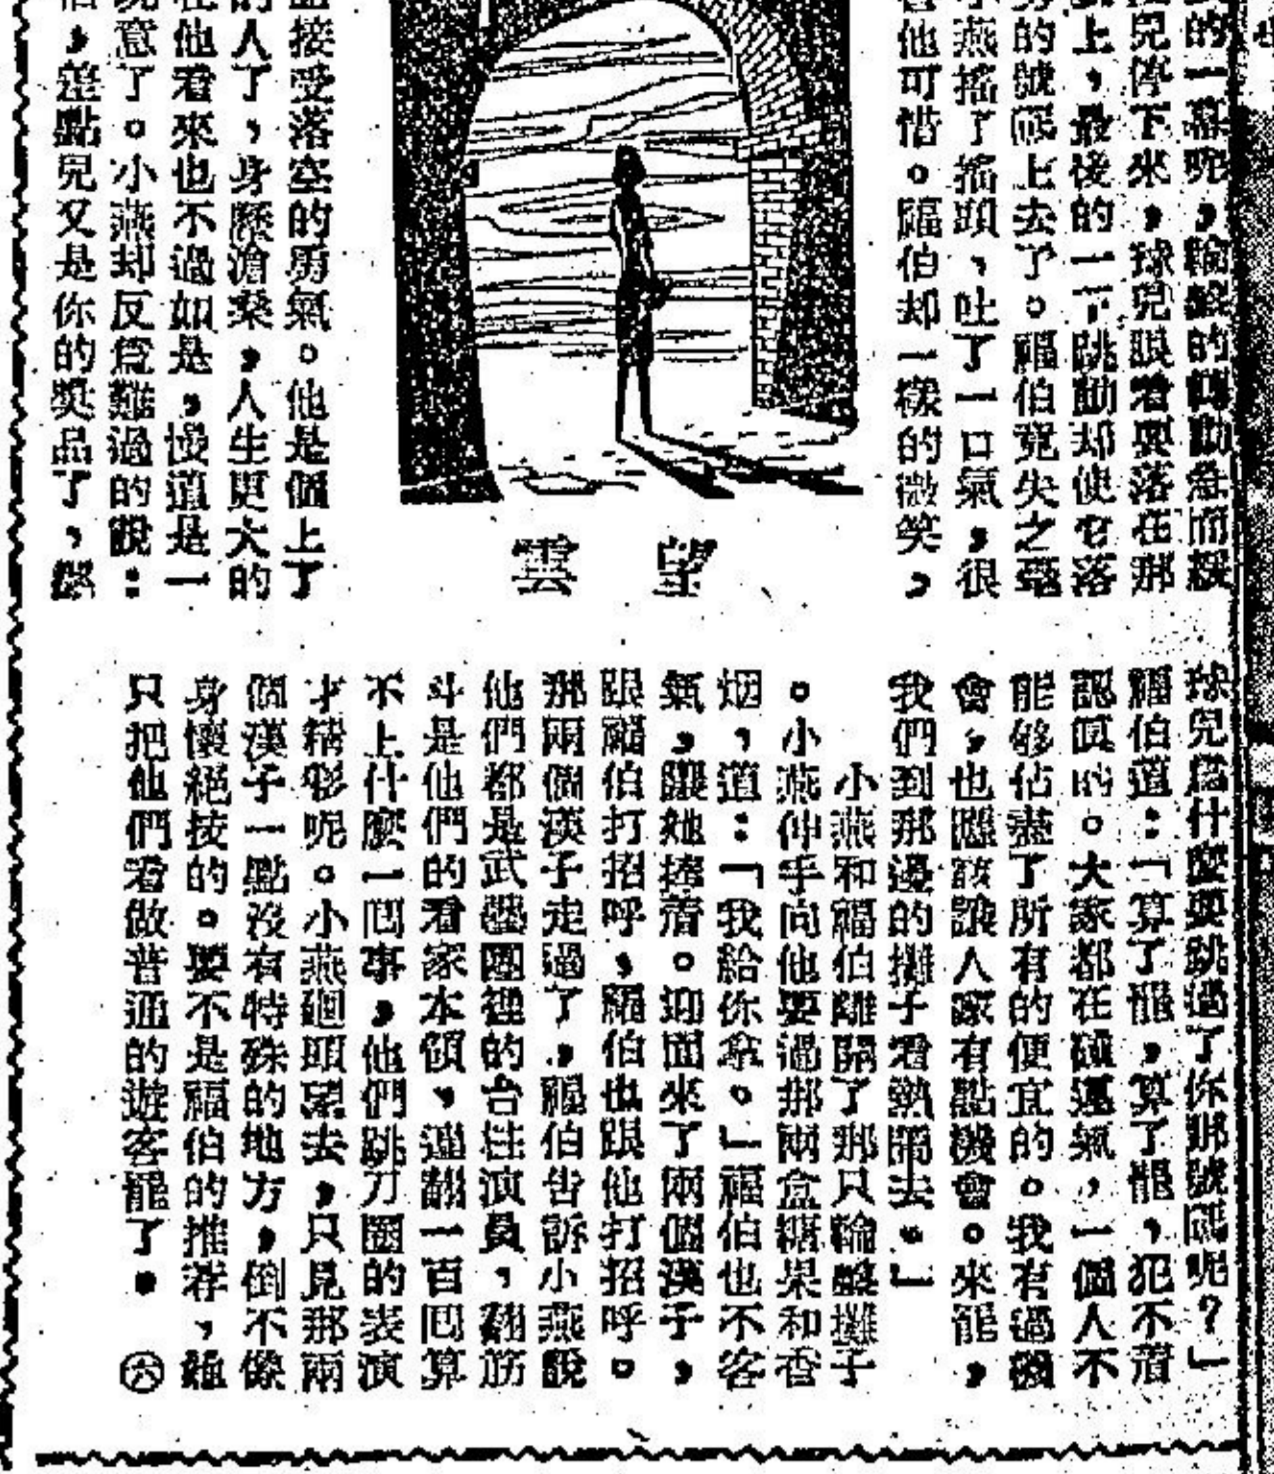 的一幕呢，輪盤的轉動急而緩
兒停下來，球兒眼看要落在那
上，最後的一下跳動却使它落
的號碼上去了。福伯竟失之毫
小燕搖了搖頭，吐了一口氣，很
他可惜。福伯却一樣的微笑，
望雲
接受落空的勇氣。他是個上了
的人了，身歷滄桑，人生更大的
在他看來也不過如是，慢道是一
意了。小燕却反爲難過的說：
，差點兒又是你的獎品了，
球兒爲什麼要跳過了你那號碼呢？」
福伯道：「算了罷，算了罷，犯不着
認眞的。大家都在碰運氣，一個人不
能够佔盡了所有的便宜的。我有過機
會，也應該讓人家有點機會。來罷，
我們到那邊的攤子看熱鬧去。」
小燕和福伯離開了那只輪盤攤子
。小燕伸手向他要過那兩盒糖果和香
烟，道：「我給你拿。」福伯也不客
氣，讓她捧着。迎面來了兩個漢子，
跟福伯打招呼，福伯也跟他打招呼。
那兩個漢子走過了，福伯告訴小燕說
他們都是武藝團裡的台柱演員，翻筋
斗是他們的看家本領，連翻一百囘算
不上什麼一囘事，他們跳刀圈的表演
才精彩呢。小燕廻頭望去，只見那兩
個漢子一點沒有特殊的地方，倒不像
身懷絕技的。要不是福伯的推荐，
只把他們看做普通的遊客罷了。㊅